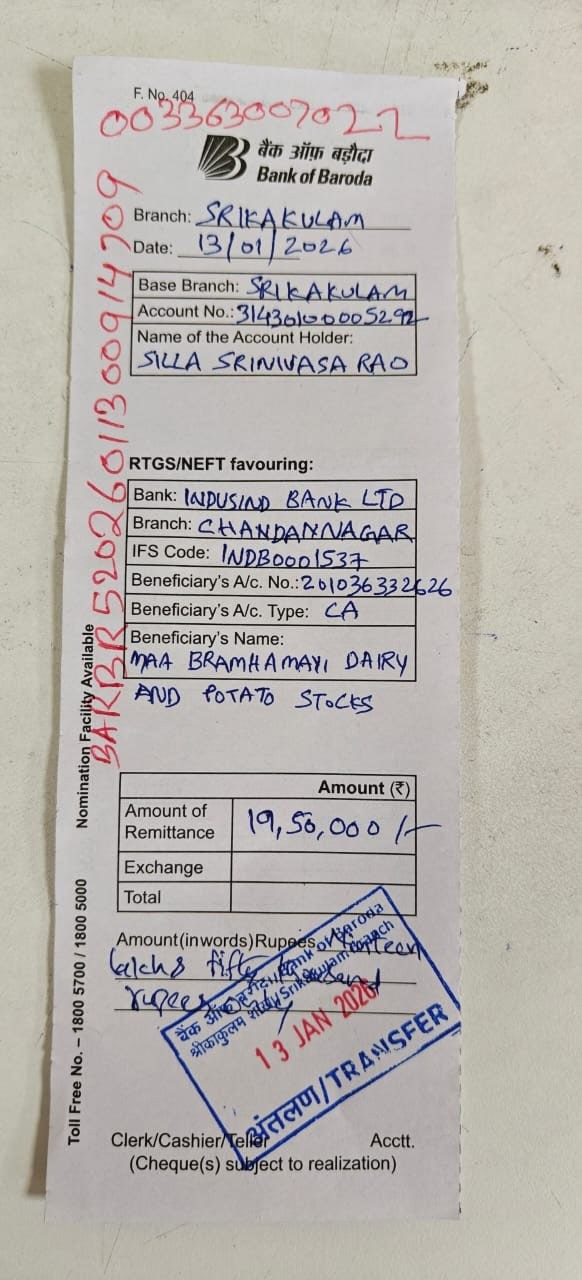 F. No. 404
003363007022
बैंक ऑफ़ बड़ौदा
Bank of Baroda
Branch: SRIKAKULAM
Date: 13/01/2026
Base Branch: SRIKAKULAM
Account No.: 31430100005292
Name of the Account Holder:
SILLA SRINIVASA RAO
RTGS/NEFT favouring:
Bank: INDUSIND BANK LTD
Branch: CHANDANNAGAR
IFS Code: INDB0001537
Beneficiary's A/c. No.: 201036332626
Beneficiary's A/c. Type: CA
Beneficiary's Name:
MAA BRAMHAMAYI DAIRY
AND POTATO STOCKS
Amount (₹)
Amount of
Remittance 19,50,000/-
Exchange
Total
Amount(inwords)Rupees Nineteen
lakhs fifty thousand
rupees only
बैंक ऑफ़ बड़ौदा/Bank of Baroda
श्रीकाकुलम शाखा/Srikakulam branch
13 JAN 2026
अंतरण/TRANSFER
Clerk/Cashier/Teller Acctt.
(Cheque(s) subject to realization)
Toll Free No. – 1800 5700 / 1800 5000 Nomination Facility Available
BARBR52026011300914709